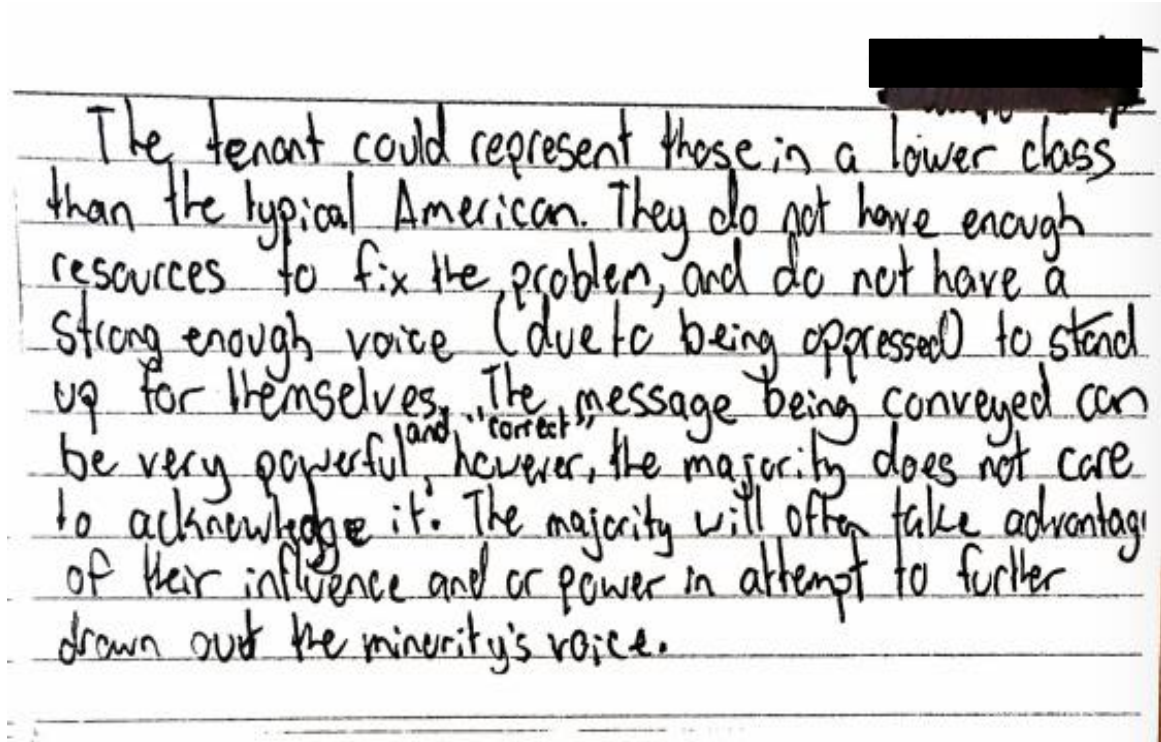 The tenant could represent those in a lower class
than the typical American. They do not have enough
resources to fix the problem, and do not have a
strong enough voice (due to being oppressed) to stand
up for themselves. The message being conveyed can
be very powerful and "correct", however, the majority does not care
to acknowledge it. The majority will often take advantag
of their influence and or power in attempt to further
drown out the minority's voice.